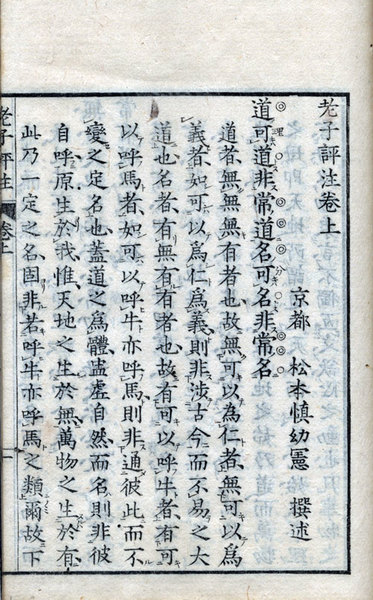 老子評注卷上
京都 松本慎幼憲 撰述
道可道非常道名可名非常名
道者無無無有者也故無可以為仁者無可以爲
義者如可以爲仁爲義則非涉古今而不易之大
道也名者有無有有者也故有可以呼牛者有可
以呼馬者如可以呼牛亦呼馬則非通彼此而不
變之定名也蓋道之爲體盅虛自然而名則非彼
自呼原生於我惟天地之生於無萬物之生於有
此乃一定之名固非若呼牛亦呼馬之類爾故下
老子評注 卷上 一